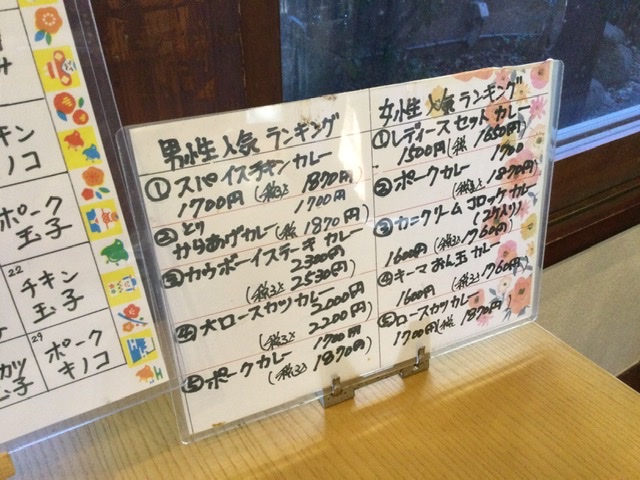 チキン
キノコ
ポーク
玉子
22
チキン
玉子
29
ポーク
キノコ
男性人気ランキング
①スパイスチキンカレー
1700円(税込1870円)
②とり
からあげカレー
1700円
(税1870円)
③カウボーイステーキカレー
2300円
(税込2530円)
④大ロースカツカレー
2000円
(税込2200円)
⑤ポークカレー
1700円
(税込1870円)
女性人気ランキング
①レディースセットカレー
1500円(税1650円)
②ポークカレー
1700
(税込1870円)
③カニクリームコロッケカレー
(2ケ入り)
1600円(税込1760円)
④キーマおん玉カレー
1600円(税込1760円)
⑤ロースカツカレー
1700円(税1870円)